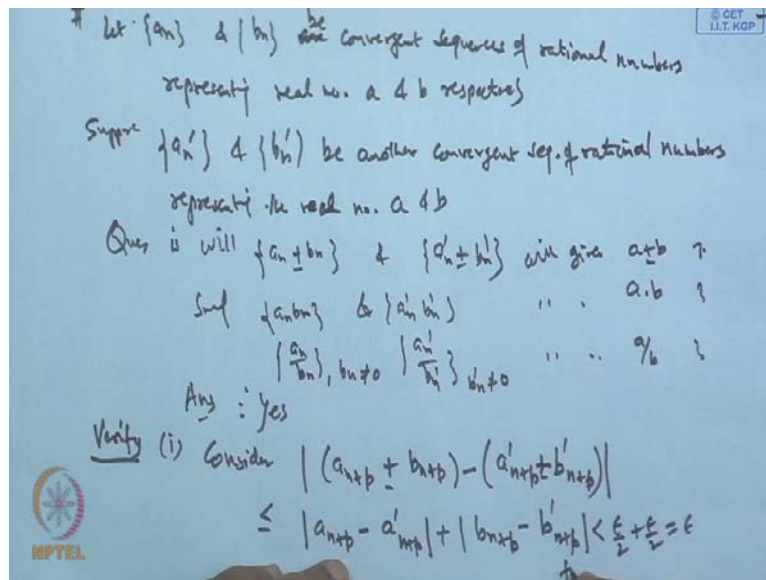 © CET
I.I.T. KGP
# Let {an} & {bn} be convergent sequences of rational numbers
representing real no. a & b respectively
Suppose {an'} & {bn'} be another convergent seq. of rational numbers
representing the real no. a & b
Ques is will {an ± bn} & {an' ± bn'} will give a±b ?
{an bn} & {an' bn'} " " a.b ?
{an/bn}, bn≠0 {an'/bn'}, bn'≠0 " " a/b ?
Ans : Yes
Verify (i) Consider |(an+p ± bn+p) − (a'n+p ± b'n+p)|
≤ |an+p − a'n+p| + |bn+p − b'n+p| < ε/2 + ε/2 = ε
NPTEL